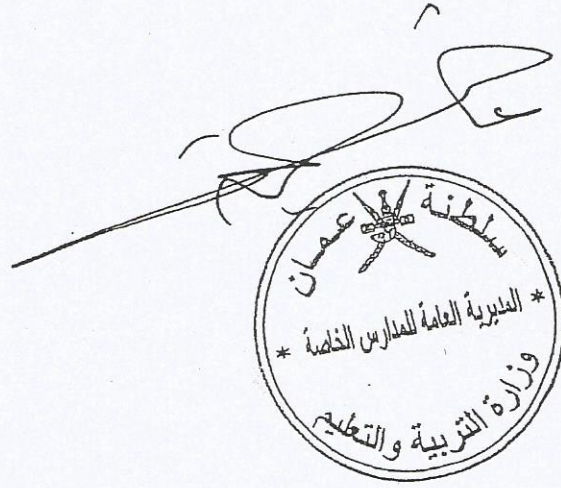 سلطنة عمان
* المديرية العامة للمدارس الخاصة *
وزارة التربية والتعليم